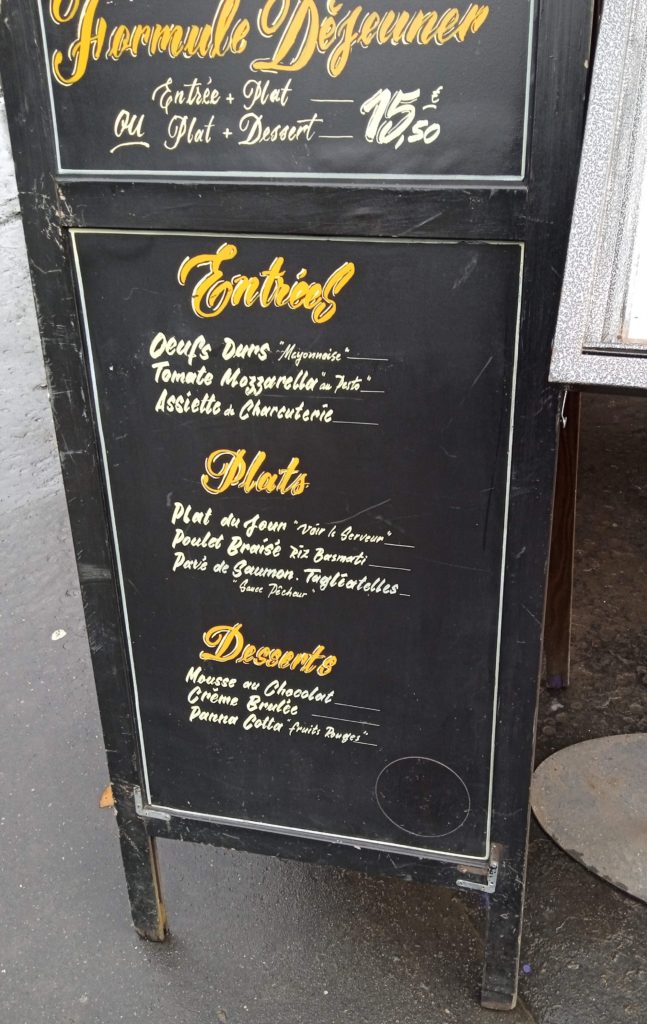 Formule Déjeuner
Entrée + Plat 15,50 €
OU Plat + Dessert
Entrées
Oeufs Durs "Mayonnaise"
Tomate Mozzarella "au Pesto"
Assiette de Charcuterie
Plats
Plat du Jour "Voir le Serveur"
Poulet Braisé Riz Basmati
Pavé de Saumon. Tagliatelles
"Sauce Pêcheur"
Desserts
Mousse au Chocolat
Crème Brulée
Panna Cotta "fruits Rouges"